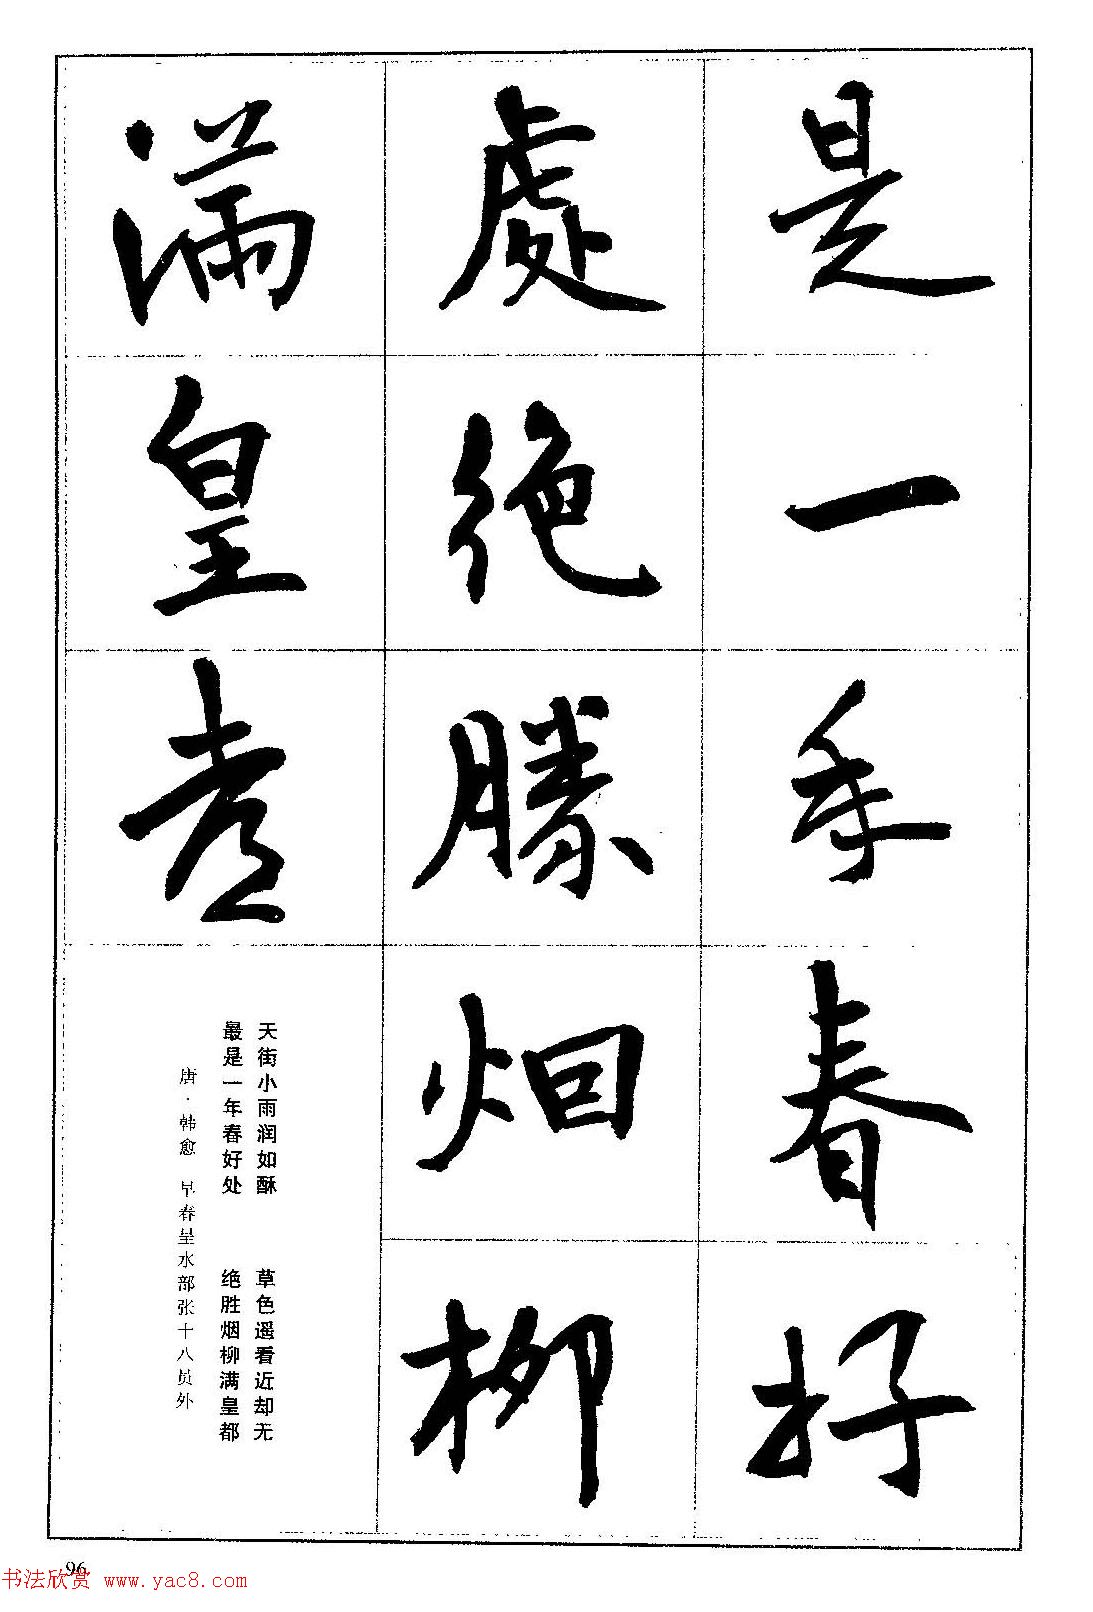 是一年春好
處絕勝烟柳
滿皇都
天街小雨润如酥 草色遥看近却无
最是一年春好处 绝胜烟柳满皇都
唐·韩愈 早春呈水部张十八员外
96
书法欣赏 www.yac8.com